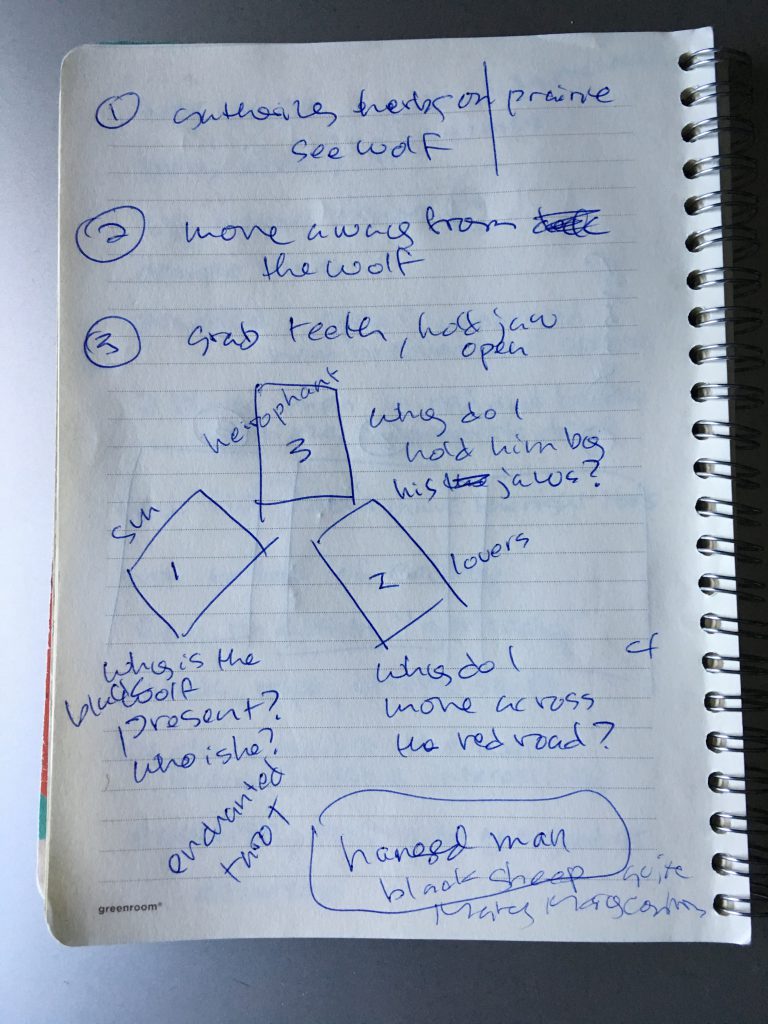 1 gathering herbs on prairie
see wolf
2 move away from
the wolf
3 grab teeth, hold jaw
open
heirophant
3
why do I
hold him by
his jaws?
sun
1
2
lovers
why is the
black wolf
present?
who is he?
enchanted
tarot
why do I
move across
the red road?
cf
hanged man
black sheep quite
Mary Mary
greenroom®